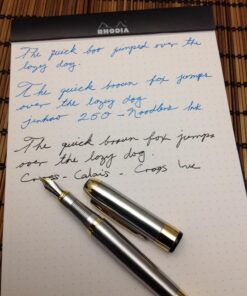 RHODIA
The quick boo jumped over the
lazy dog.
The quick brown fox jumps
over the lazy dog
Jinhao 250 - Noodlers Ink
The quick brown fox jumps
over the lazy dog.
Cross - Calais - Cross Ink